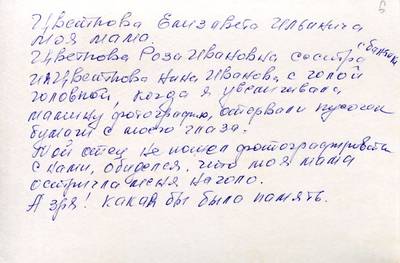 Цветкова Елизавета Ильинича
моя мама.
Цветкова Роза Ивановна состра с бантом
и Цветкова Нина Иванова, с голой
головной, когда я увеличивала
мамину фотографию, оторвали кусочек
бумаги с моего глаза.
Мой отец не пошел фотографироваться
с нами, обиделся, что моя мама
остригла меня наголо.
А зря! какая бы была память.